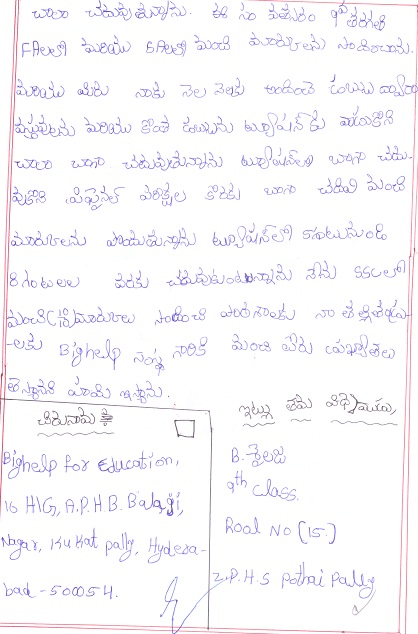 చాలా చదువుతున్నాను. ఈ సం వత్సరం 9వ తరగతి
FAలలో మరియు SAలలో మంచి మార్కులను సాధించాను.
మరియు మీరు నాకు నెల నెలకు అందించే డబ్బు ద్వారా
వస్తువులను మరియు కొంత డబ్బును ట్యూషన్ కు వాడుకొని
చాలా బాగా చదువుతున్నాను ట్యూషన్‌లో బాగా చదు-
వుకొని ప్రీఫైనల్ పరీక్షల కొరకు బాగా చదివి మంచి
మార్కులను పొందుతున్నాను ట్యూషన్‌లో 5గంటలనుండి
8గంటలల వరకు చదువుకుంటున్నాను నేను SSCలలో
మంచి(10/10)మార్కులు సాధించి పాఠశాలకు నా తల్లితండ్రు-
-లకు Bighelp సంస్థ వారికి మంచి పేరు ప్రఖ్యాతలు
తెస్తానని హామి ఇస్తాను.
చిరునామా
Bighelp for Education,
16 HIG, A.P.H.B. Balaji,
Nagar, Kukat pally, Hydera-
bad - 500054.
ఇట్లు తమ విధేయురాలు,
B. శైలజ
9th class.
Roal No (15.)
Z.P.H.S Pothai Pally